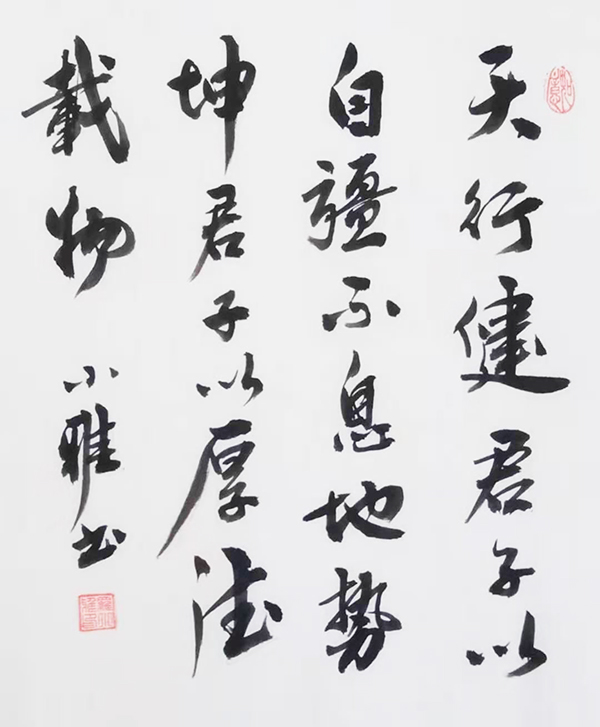 天行健君子以
自彊不息地势
坤君子以厚德
載物
小雅书